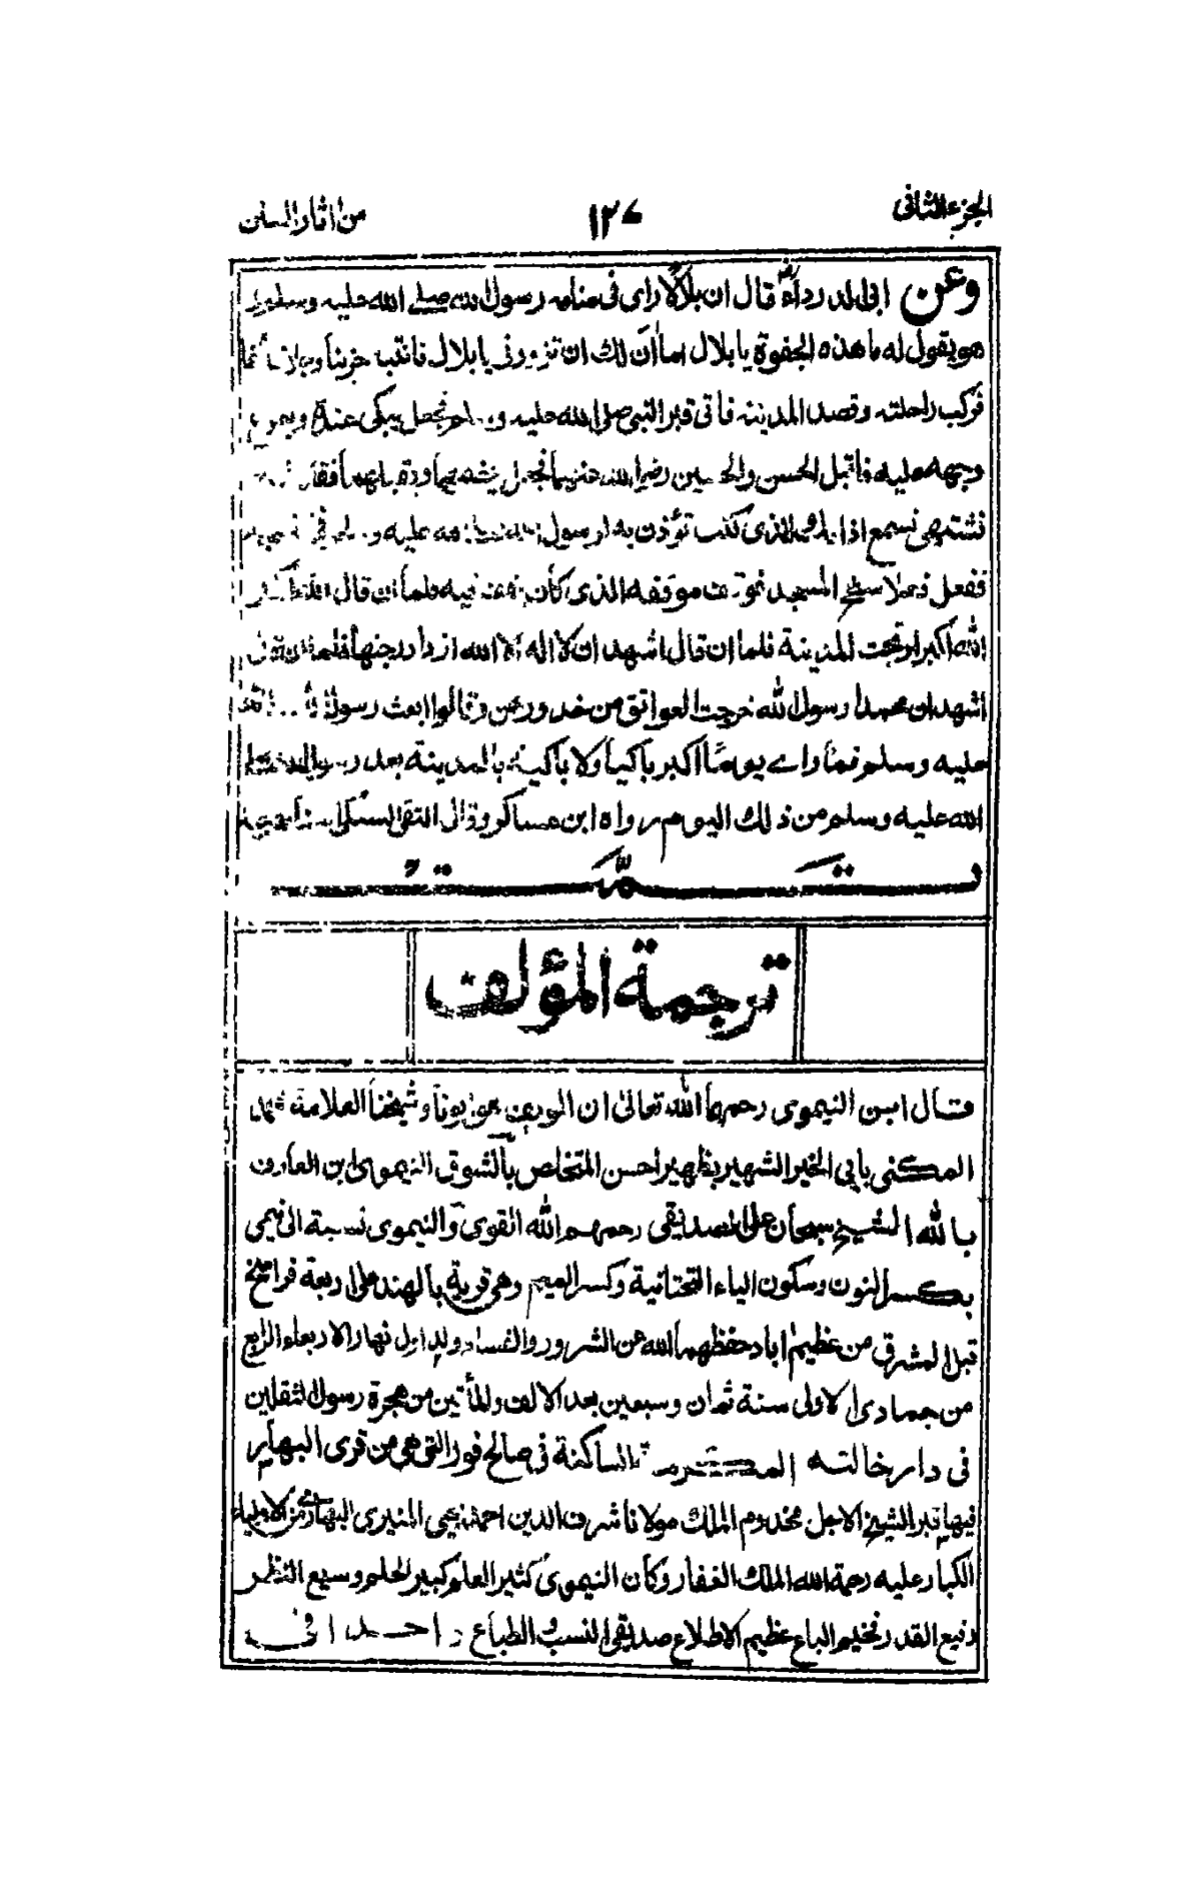 الجزء الثانى
١٢٧
من اثار السنن
وعن ابى الدرداء رض قال ان بلالا راى فى منامه رسول الله صلے الله عليه وسلم
هو يقول له ما هذه الجفوة يا بلال اما ان لك ان تزورنى يا بلال فانتبه حزينا
فركب راحلته وقصد المدينة فاتى قبر النبى صلى الله عليه فجعل يبكى عنده
وجهه عليه فاقبل الحسن والحسين رضى الله عنهما فجعل يضمهما
نشتهى نسمع اذانك الذى كنت تؤذن به لرسول الله عليه
ففعل فعلا سطح المسجد فوقف موقفه الذى كان يقف فيه فلما ان قال الله اكبر
الله اكبر ارتجت المدينة فلما ان قال اشهد ان لا اله الا الله ازداد رجتها فلما ان قال
اشهد ان محمدا رسول الله خرجت العواتق من خدورهن وقالوا ابعث رسول الله
عليه وسلم فما راے يوما اكبر باكيا ولا باكية بالمدينة بعد رسول الله صلے
الله عليه وسلم من ذلك اليوم رواه ابن عساكر وقال التقى السبكى
تمت
ترجمة المؤلف
قال ابن النيموى رحمهما الله تعالى ان ابونا وشيخنا العلامة محمد
المكنى بابى الخير الشهير بظهير احسن المتخلص بالشوق النيموى ابن العارف
بالله الشيخ سبحان على الصديقى رحمهم الله القوى والنيموى نسبة الى نيمى
بكسر النون وسكون الياء التحتانية وكسر الميم وهى قرية بالهند على اربعة فراسخ
قبل المشرق من عظيم اباد حفظهما الله عن الشرور والفساد ولد اول نهار الاربعاء الرابع
من جمادى الاولى سنة ثمان وسبعين بعد الالف والمأتين من هجرة رسول الثقلين
فى دار خالته المكرمة الساكنة فى صالح فور التى هى من قرى البهار
فيها قبر الشيخ الاجل مخدوم الملك مولانا شرف الدين احمد بن يحيى المنيرى البهارى من الاولياء
الكبار عليه رحمة الله الملك الغفار وكان النيموى كثير العلم كبير الحلم وسيع النظر
رفيع القدر فخيم الباع عظيم الاطلاع صديقى النسب والطباع